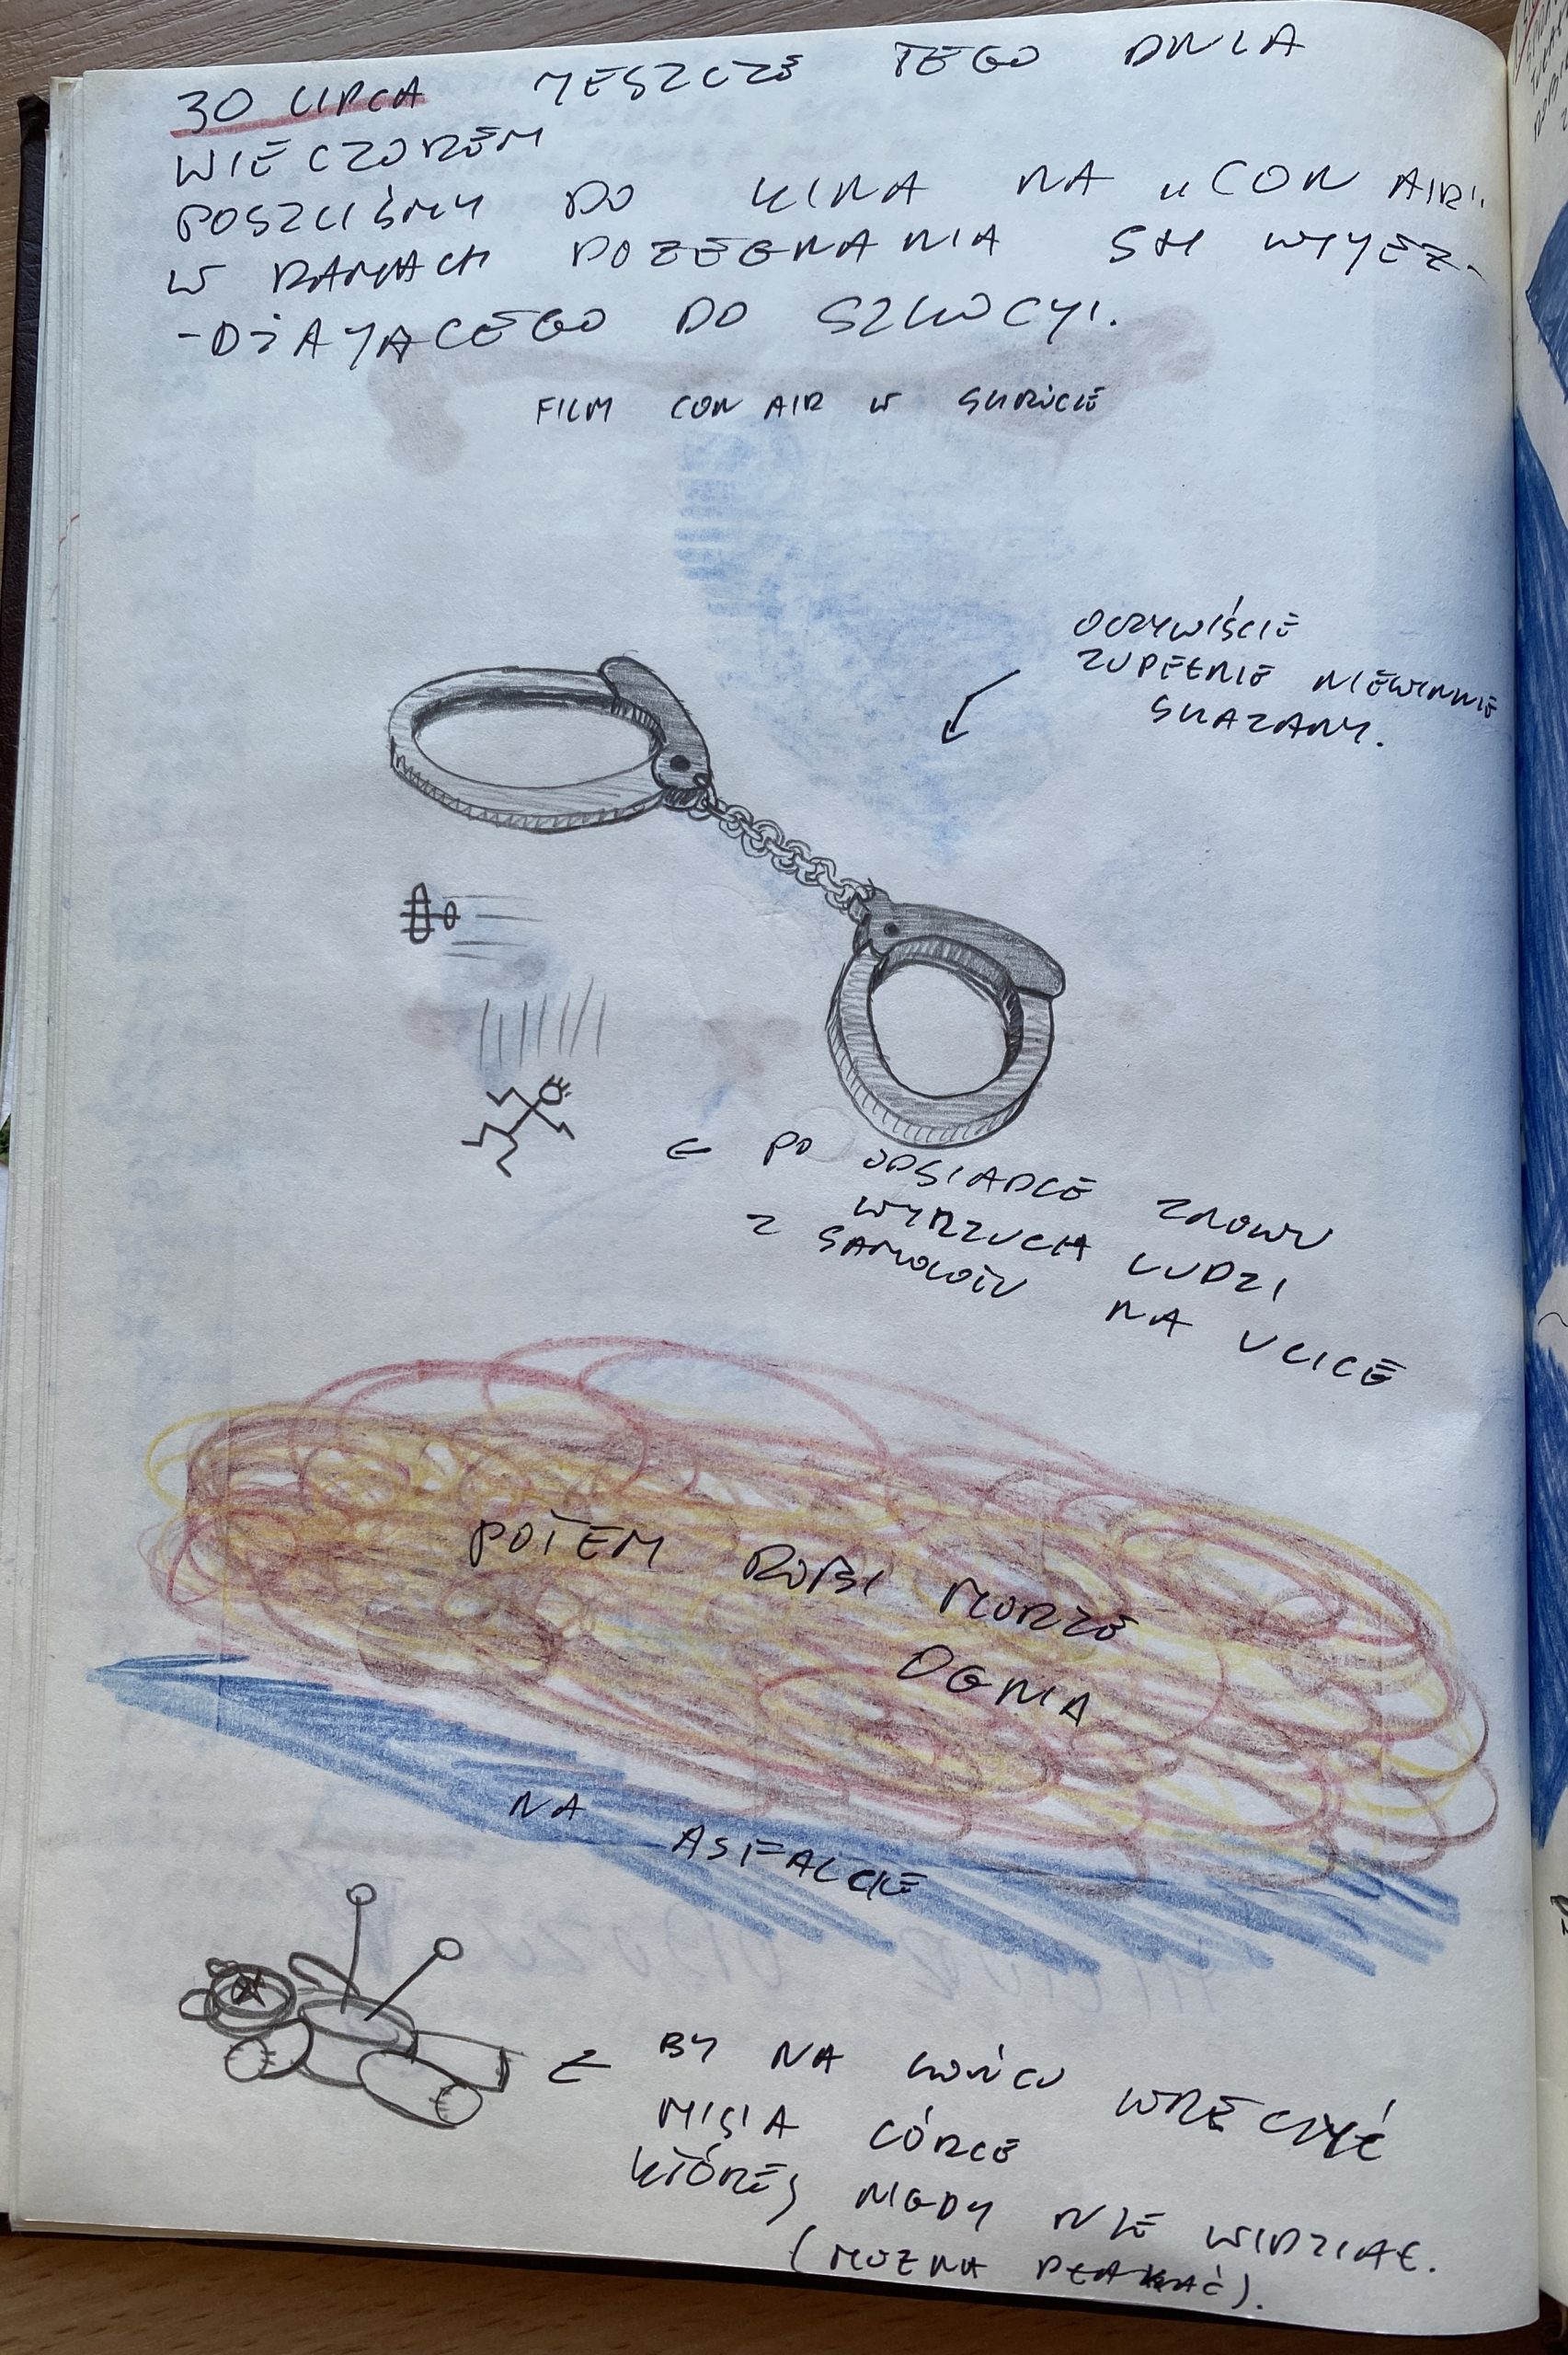 30 LIPCA JESZCZE TEGO DNIA
WIECZOREM
POSZLIŚMY DO KINA NA „CON AIR"
W RAMACH POŻEGNANIA SM WYJEŻ-
-DŻAJĄCEGO DO SZKOCJI.
FILM CON AIR W SKRÓCIE
OCZYWIŚCIE
ZUPEŁNIE NIEWINNIE
SKAZANY.
← PO ODSIADCE ZNOWU
WYRZUCA LUDZI
Z SAMOLOTU NA ULICĘ
POTEM ROBI MORZE
OGNIA
NA ASFALCIE
← BY NA KOŃCU WRĘCZYĆ
MISIA CÓRCE
KTÓREJ NIGDY NIE WIDZIAŁ.
(MOŻNA PŁAKAĆ).